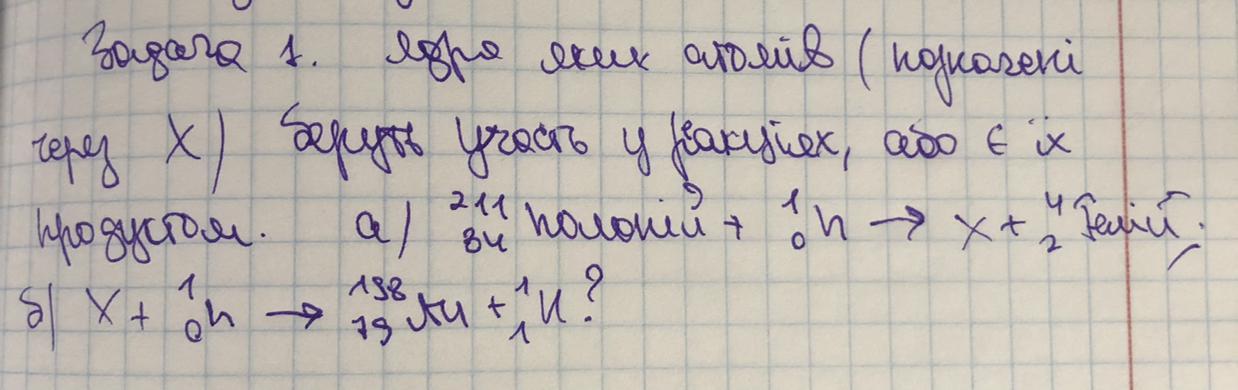 Задача 1. Ядра яких атомів (позначені
через X) беруть участь у реакціях, або є їх
продуктом. а) ²¹¹₈₄ Полоній + ¹₀n → X + ⁴₂ Гелій;
б) X + ¹₀n → ¹⁹⁸₇₉ Au + ¹₁H?